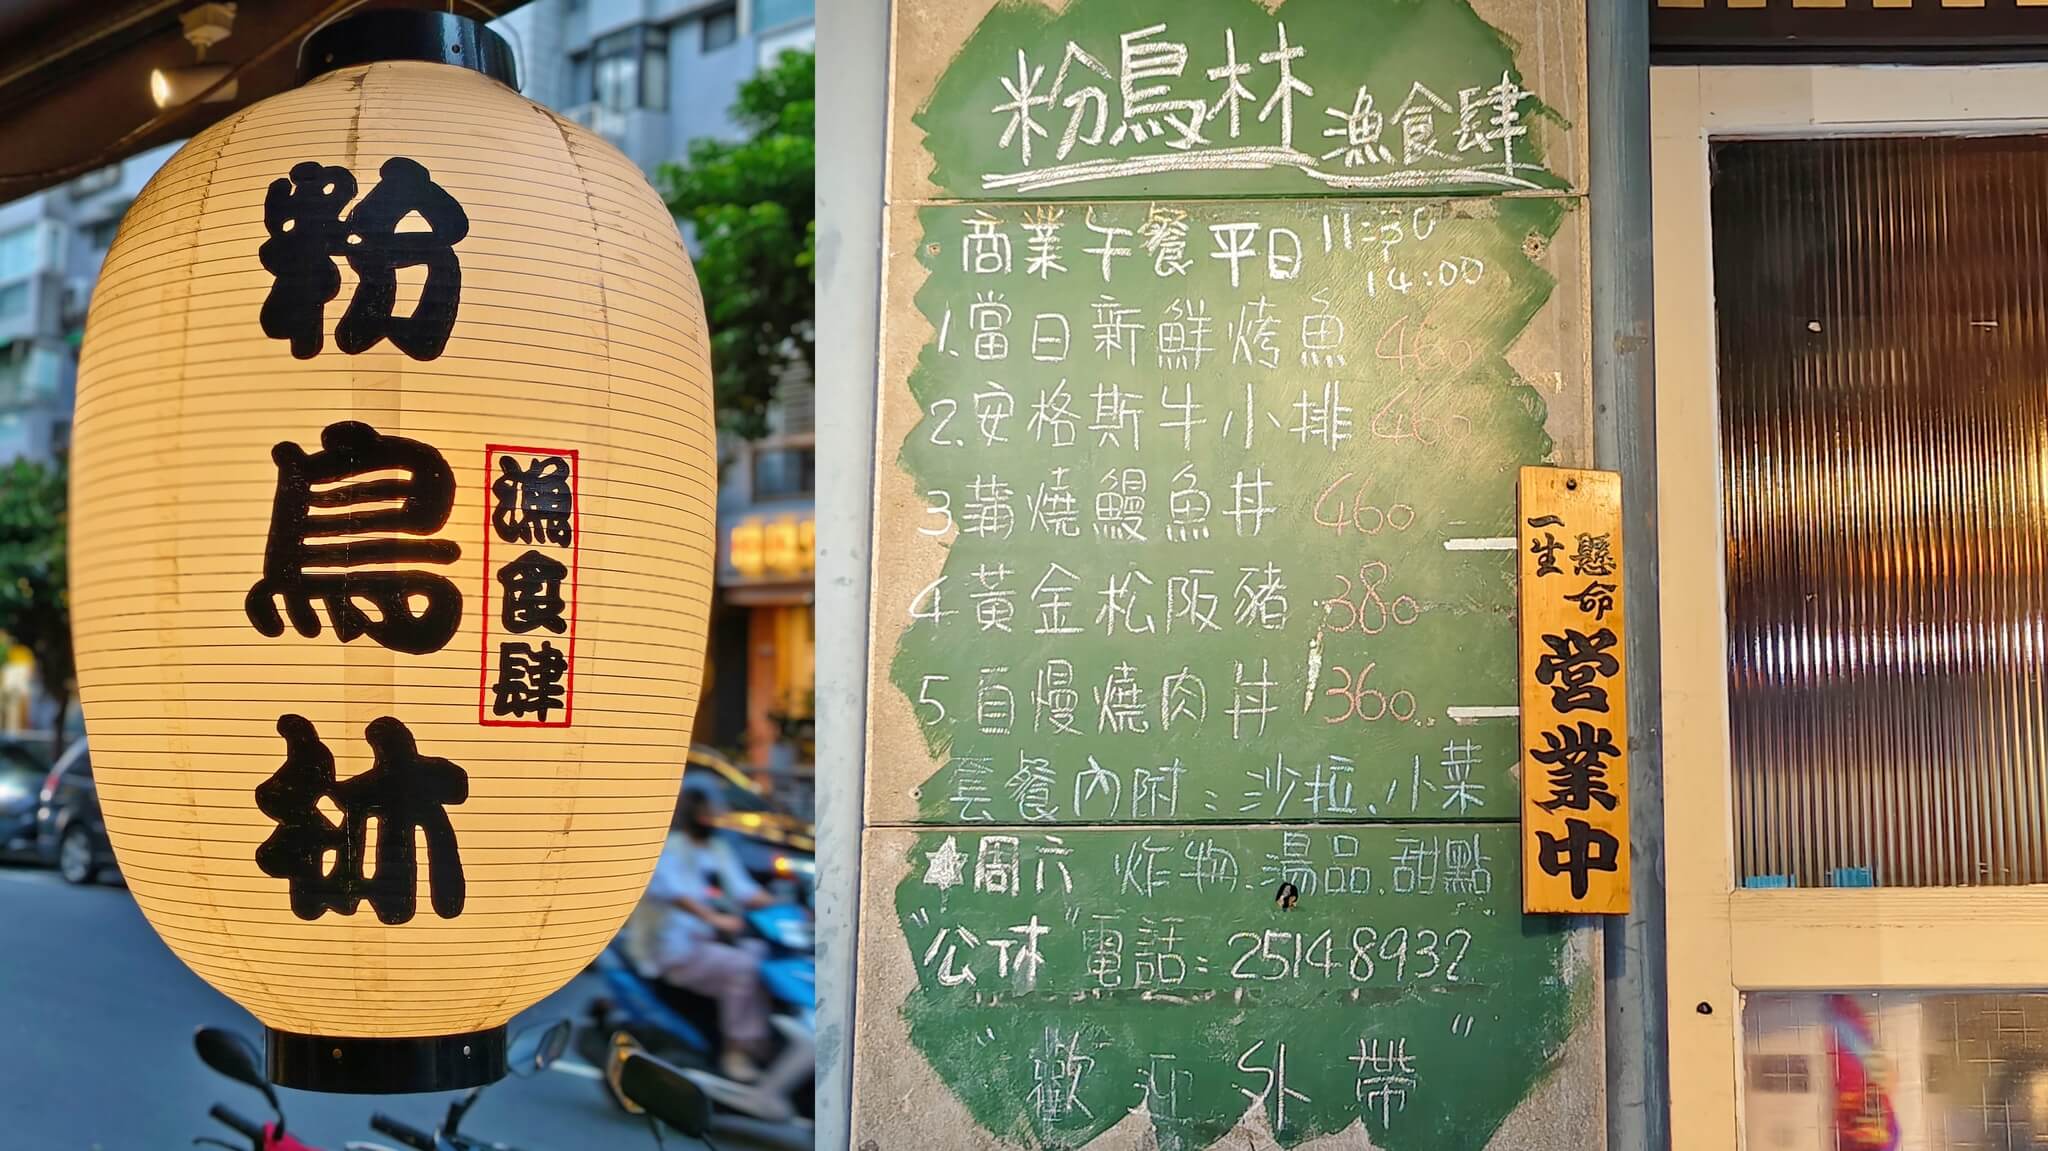 粉鳥林
漁食肆
粉鳥林漁食肆
商業午餐平日11:30
14:00
1.當日新鮮烤魚 460
2.安格斯牛小排 460
3蒲燒鰻魚丼 460
4.黃金松阪豬 380
5.自慢燒肉丼 360
套餐內附:沙拉、小菜
★周六 炸物.湯品.甜點
"公休" 電話:25148932
"歡迎外帶"
一生懸命
営業中